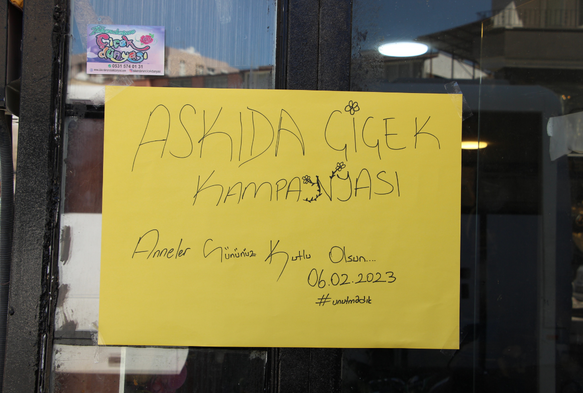 Çiçek
Dünyası
0531 574 01 31
ASKIDA ÇİÇEK
KAMPANYASI
Anneler Gününüz Kutlu Olsun....
06.02.2023
#unutmadık